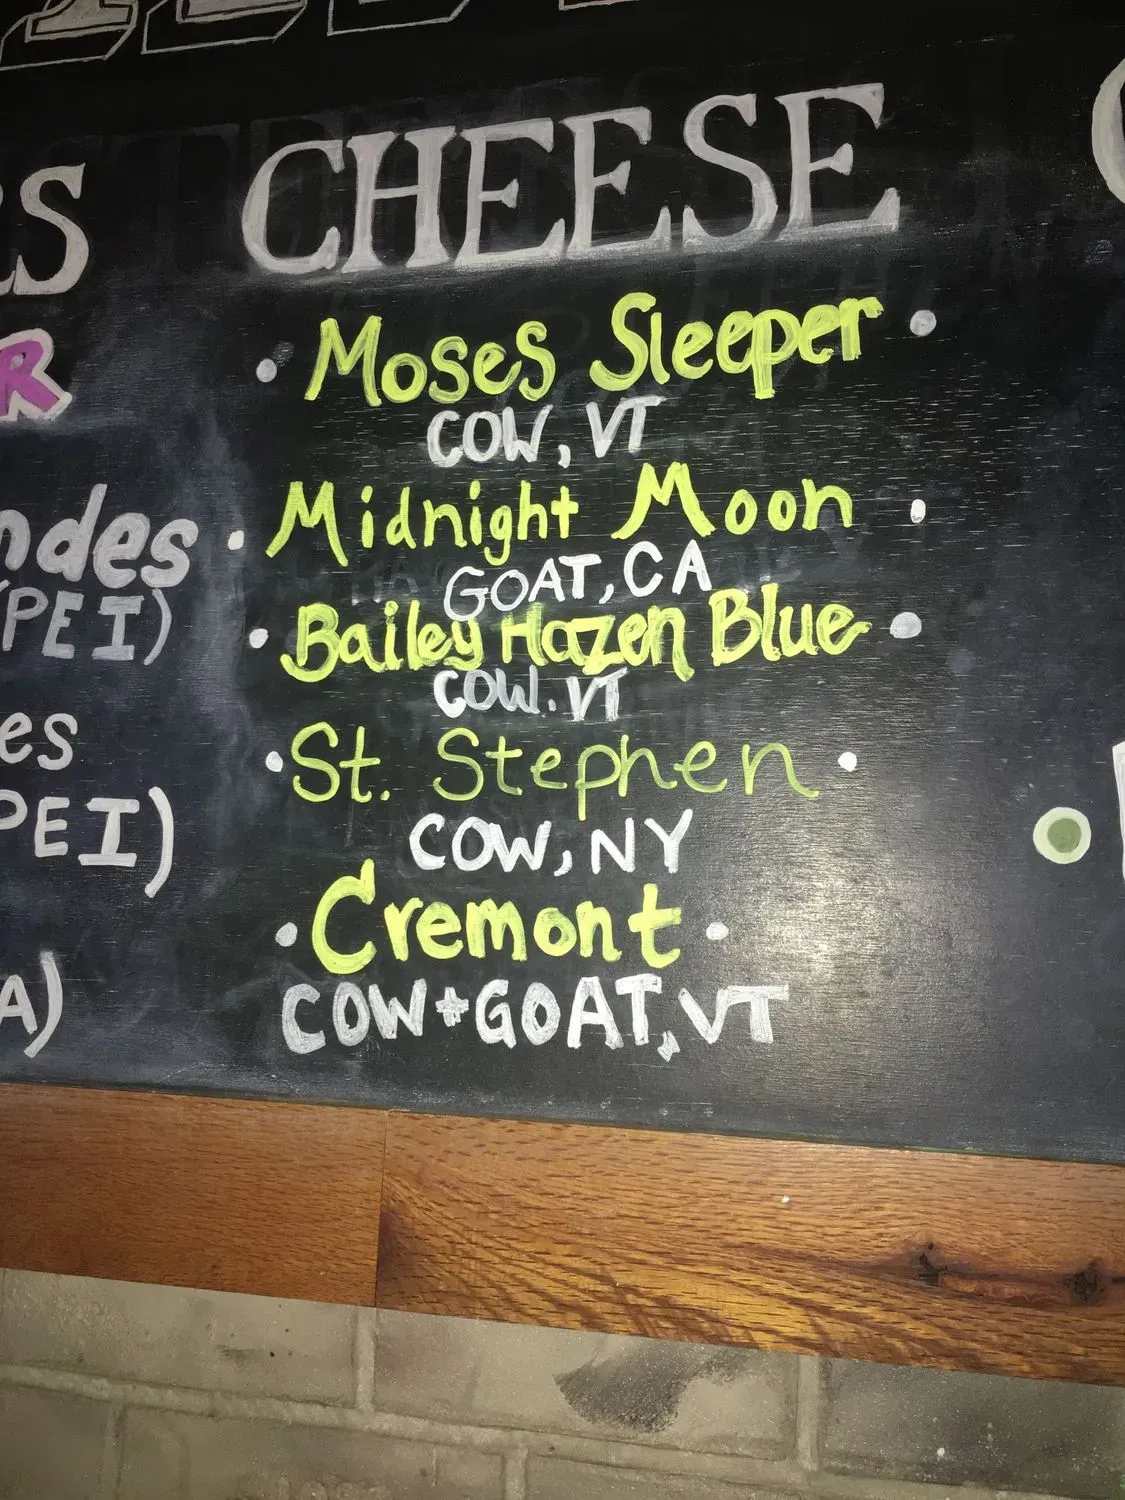 CHEESE
• Moses Sleeper •
COW, VT
• Midnight Moon •
GOAT, CA
• Bailey Hazen Blue •
COW. VT
• St. Stephen •
COW, NY
• Cremont •
COW+GOAT, VT
RS
R
ndes
(PEI)
es
PEI)
A)